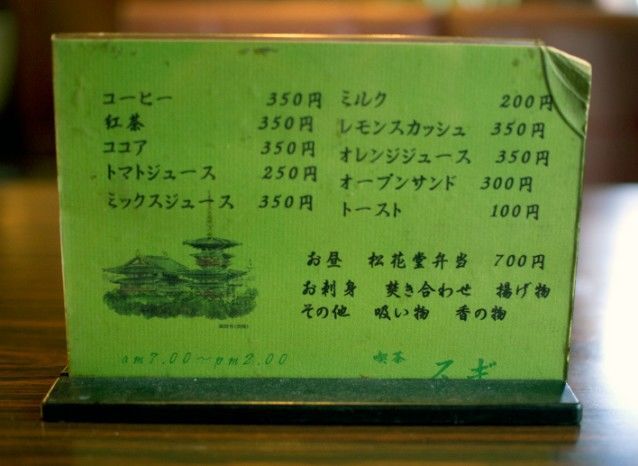 コーヒー 350円
紅茶 350円
ココア 350円
トマトジュース 250円
ミックスジュース 350円
ミルク 200円
レモンスカッシュ 350円
オレンジジュース 350円
オープンサンド 300円
トースト 100円
お昼 松花堂弁当 700円
お刺身 焚き合わせ 揚げ物
その他 吸い物 香の物
am7.00〜pm2.00
喫茶 スギ